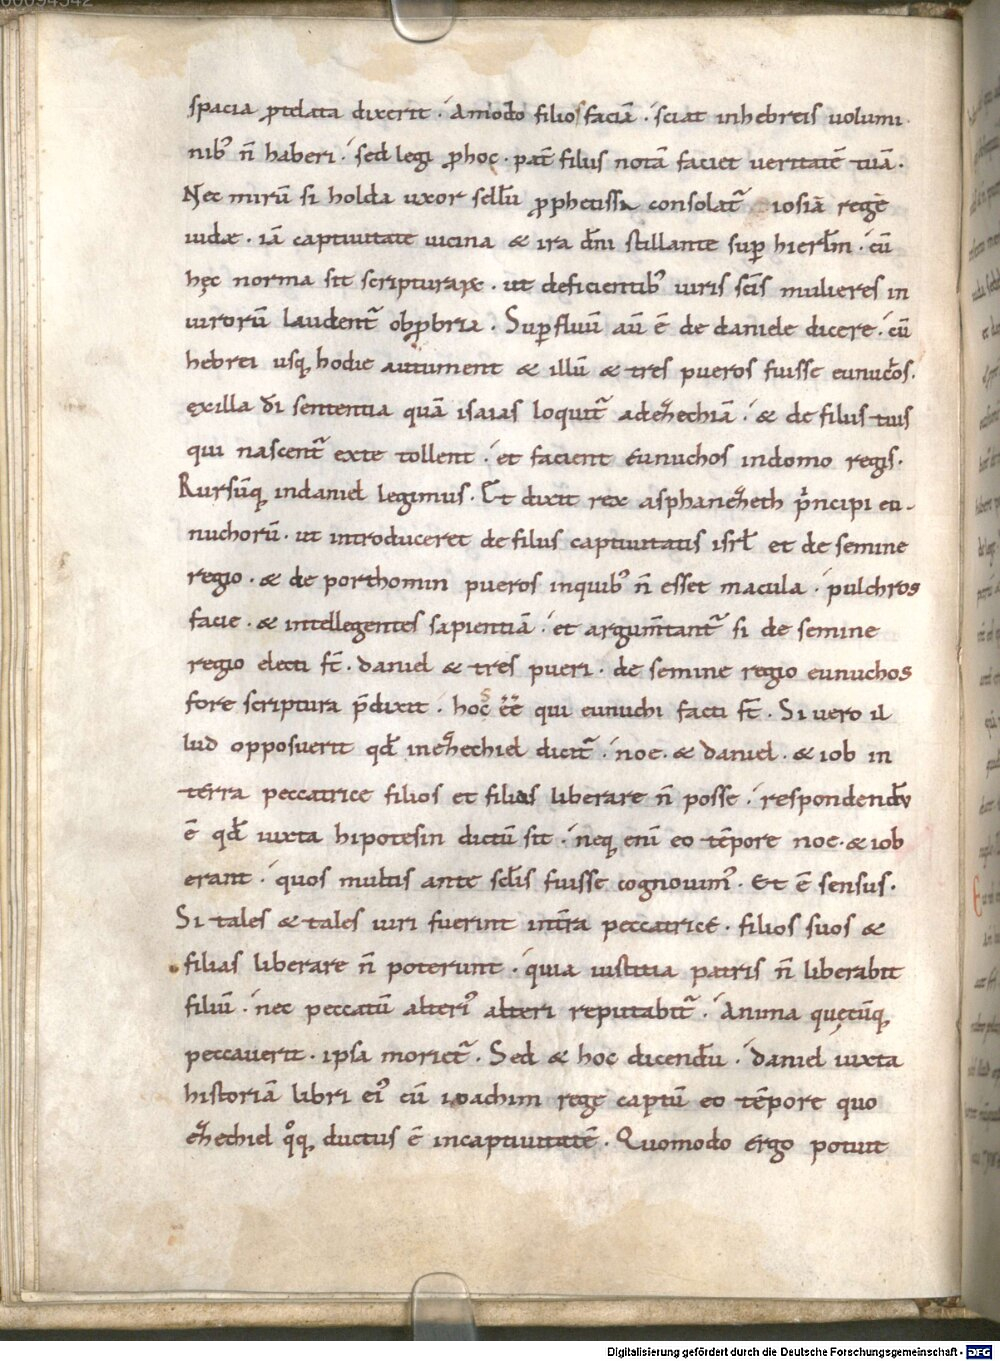 spacia p̱tdata dixerit · Amodo filios faciā · sciat inhebreis uolumi
nibꝰ n̄ haberi · sed legi ꝓhoc · pat̄ filiis notā faciet ueritatē tuā ·
Nec mirū si holda uxor sellū ꝓphetissa consolat̄ iosiā regē
iudæ · iā captiuitate uicina & ira dn̄i stillante suꝑ hierl̄m · cū
hęc norma sit scripturarꝫ · ut deficientibꝰ uiris sc̄is mulieres in
uirorū laudent̄ obꝓbria · Suꝑfluū aū ē de daniele dicere · cū
hebrei usqꝫ hodie autument & illū & tres pueros fuisse eunuchos ·
exilla dī sententia quā isaias loquit̄ adezechiā · & de filiis tuis
qui nascent̄ exte tollent · et facient eunuchos indomo regis ·
Rursūqꝫ indaniel legimus · Et dixit rex asphanezheth p̄ncipi eu-
nuchorū · ut introduceret defiliis captiuitatis isrl̄ et de semine
regio · & de porthomin pueros inquibꝰ n̄ esset macula · pulchros
facie · & intellegentes sapientiā · et argum̄tant̄ si de semine
regio electi st̄ · daniel & tres pueri · de semine regio eunuchos
fore scriptura p̄dixit · hoc s ēē qui eunuchi facti st̄ · Si uero il
lud opposuerit qd̄ inezechiel dicit̄ · noe · & daniel · & iob in
terra peccatrice filios et filias liberare n̄ posse · respondendū
ē qd̄ iuxta hipotesin dictū sit · neqꝫ enī eo tēpore noe · & iob
erant · quos multis ante sclīs fuisse cognouimꝰ · Et ē sensus ·
Si tales & tales uiri fuerint int̄ra peccatrice · filios suos &
filias liberare n̄ poterunt · quia iustitia patris n̄ liberabit
filiū · nec peccatū alteriꝰ alteri reputabit̄ · Anima quęcūqꝫ
peccauerit · ipsa moriet̄ · Sed & hoc dicendū · daniel iuxta
historiā libri eiꝰ cū ioachim rege captū eo tēpore quo
ezechiel qͦqꝫ ductus ē incaptiuitatē · Quomodo ergo potuit
Digitalisierung gefördert durch die Deutsche Forschungsgemeinschaft - DFG